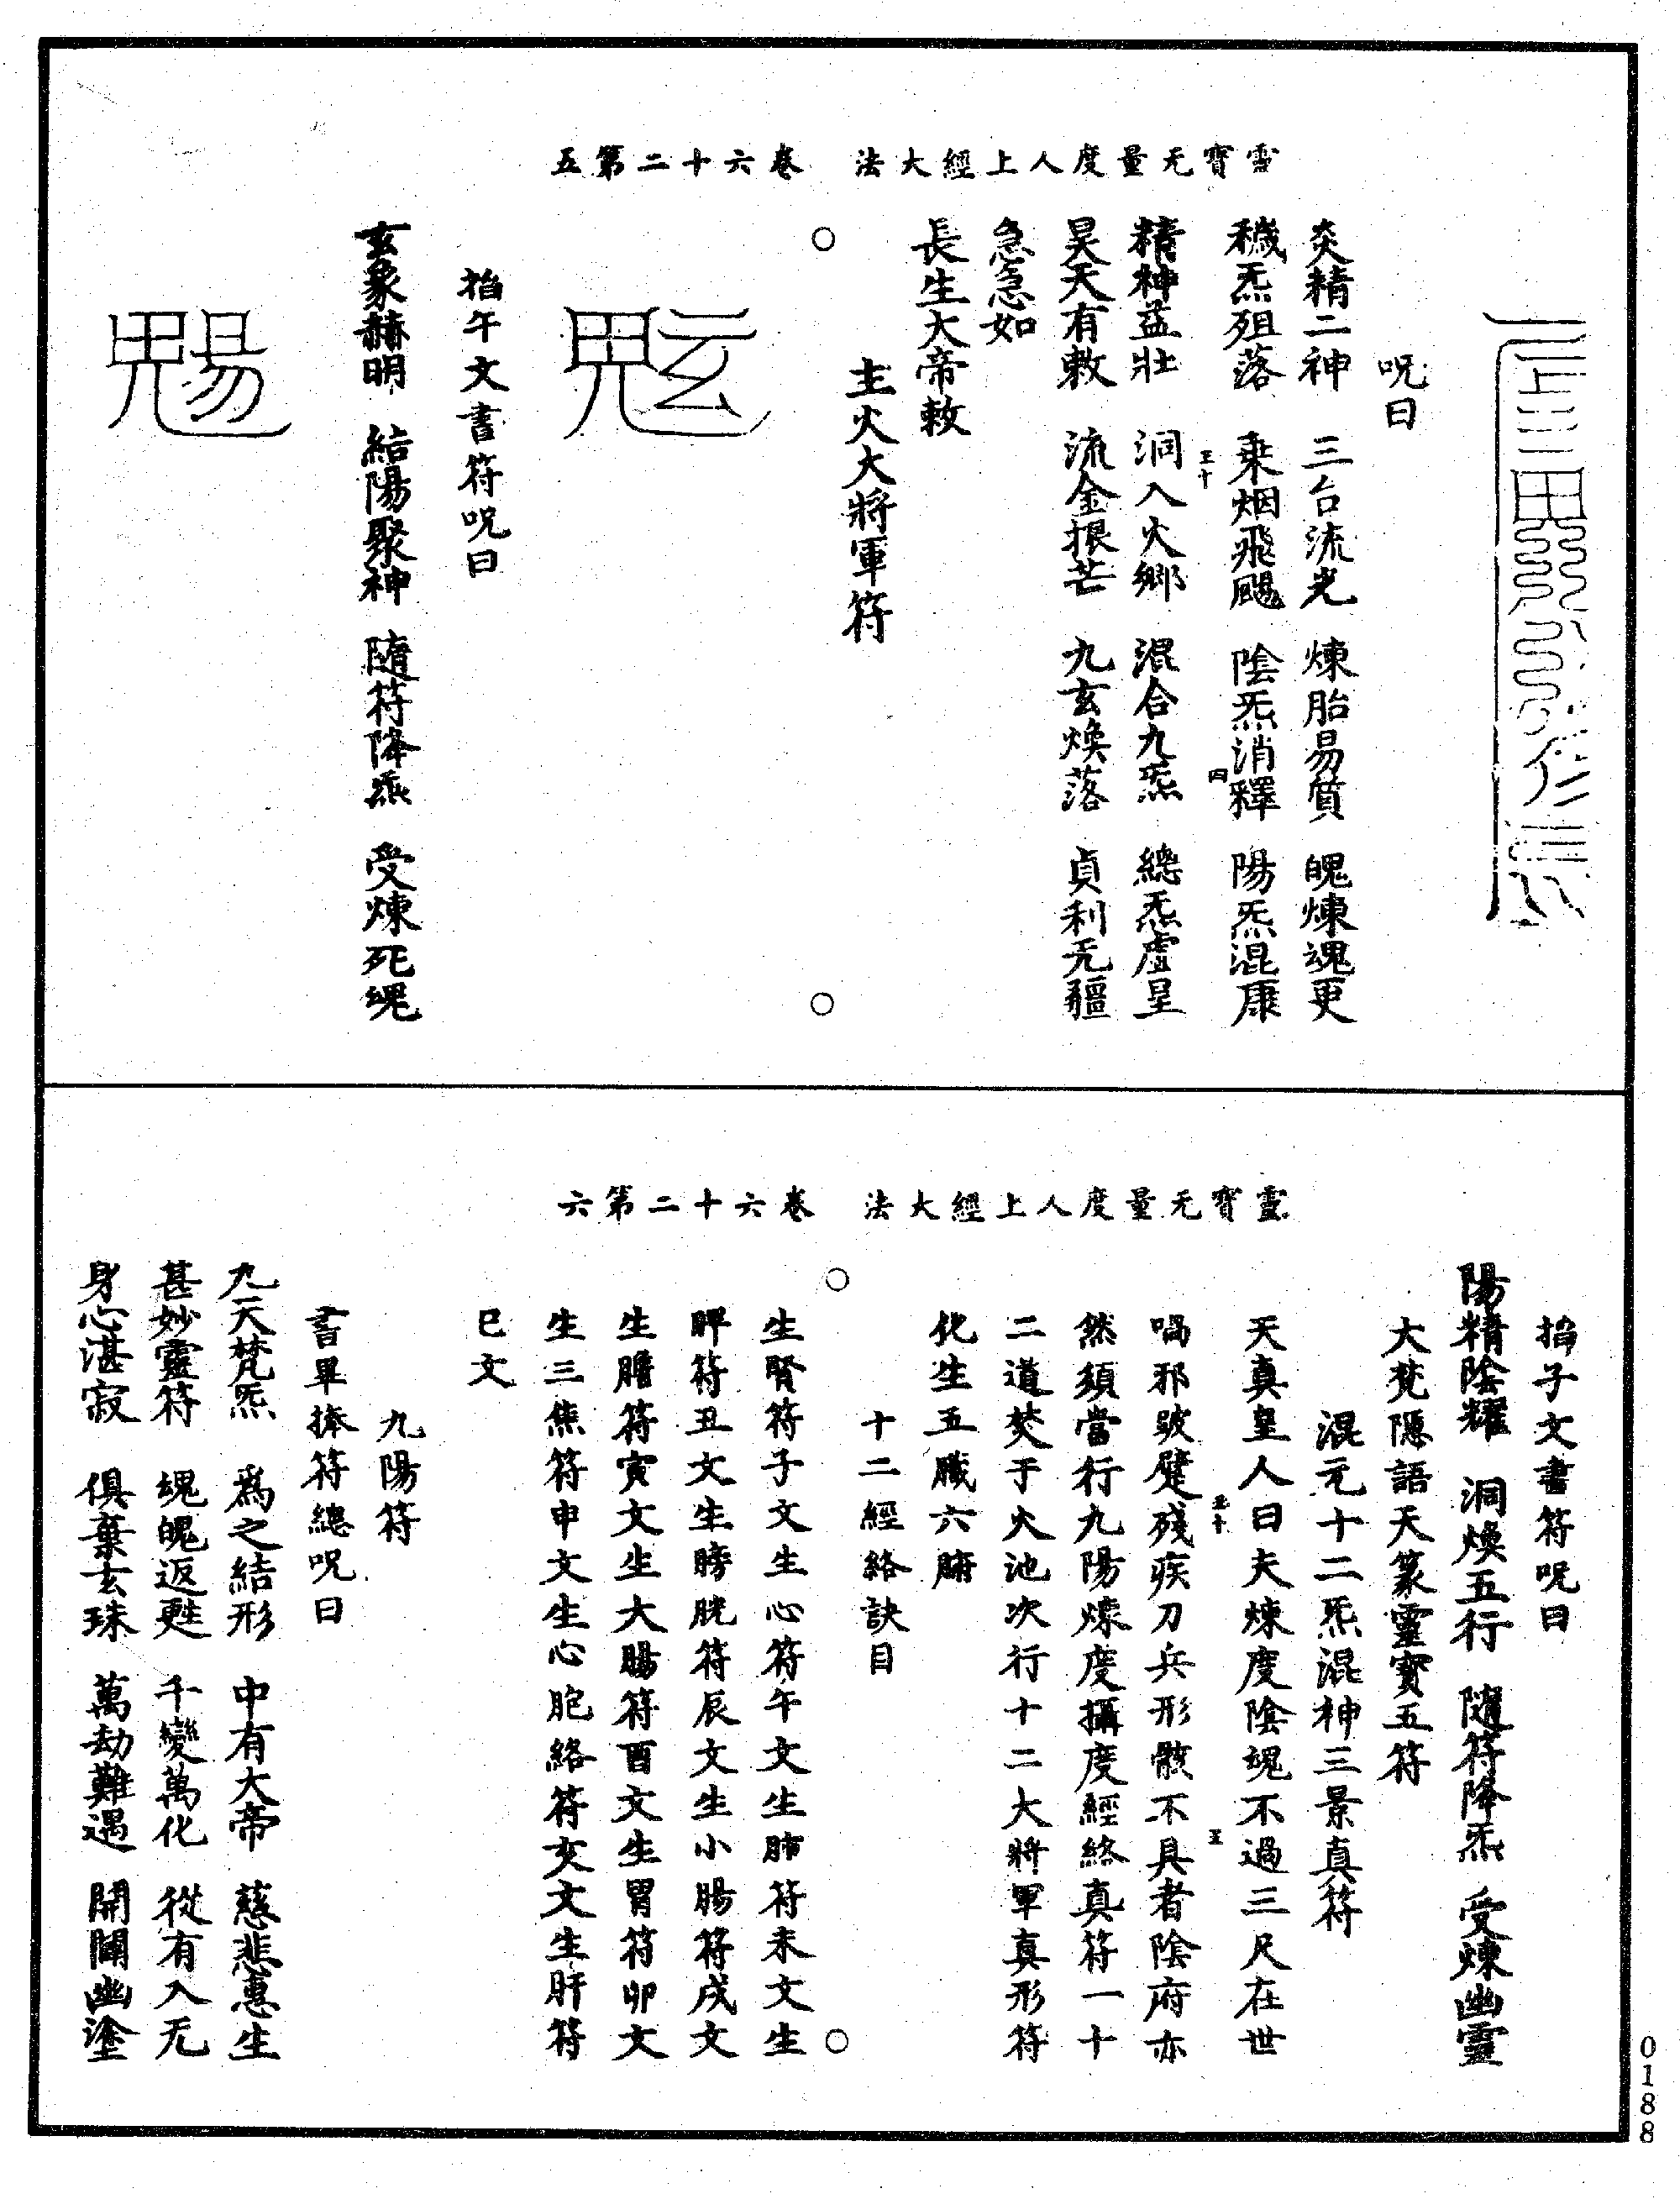 靈寶无量度人上經大法　卷六十二第五
呪曰
炎精二神　三台流光　煉胎易質　魄煉魂更
穢炁殂落　乗烟飛颺　陰炁消釋　陽炁混康
五十
四
精神益壯　洞入火鄉　混合九炁　總炁虛呈
昊天有敕　流金振芒　九玄煥落　貞利无疆
急急如
長生大帝敕
主火大將軍符
掐午文書符呪曰
玄象赫明　結陽聚神　随符降炁　受煉死魂
靈寶无量度人上經大法　卷六十二第六
掐子文書符呪曰
陽精陰耀　洞煥五行　隨符降炁　受煉幽靈
大梵隱語天篆靈寶五符
混元十二炁混神三景真符
天真皇人曰夫煉度陰魂不過三尺在世
五十
五
喎邪跛躄殘疾刀兵形骸不具者陰府亦
然須當行九陽煉度攝度經絡真符一十
二道焚于火池次行十二大將軍真形符
化生五臟六腑
十二經絡訣目
生腎符子文生心符午文生肺符未文生
脾符丑文生膀胱符辰文生小腸符戌文
生膽符寅文生大腸符酉文生胃符卯文
生三焦符申文生心胞絡符亥文生肝符
巳文
九陽符
書畢捧符總呪曰
九天梵炁　為之結形　中有大帝　慈悲惠生
甚妙靈符　魂魄返甦　千變萬化　從有入无
身心湛寂　俱棄玄珠　萬劫難遇　開闢幽塗
0188